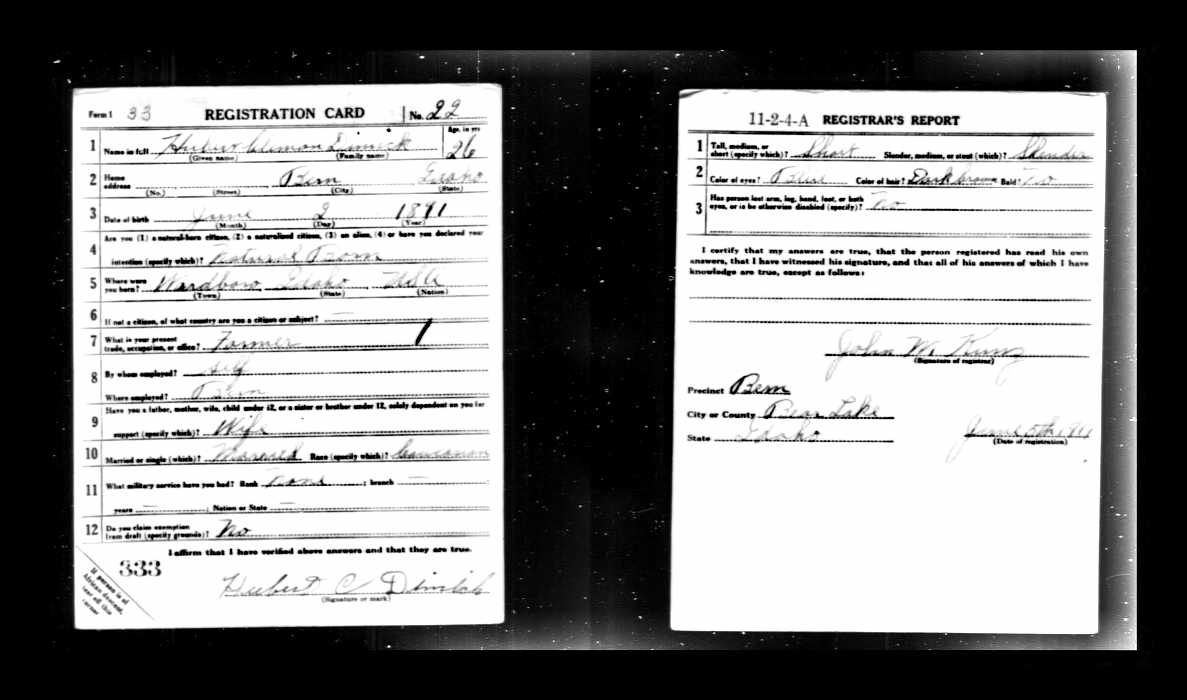 Form 1 33 REGISTRATION CARD No. 22
1 Name in full Hubert Climon Dimick Age, in yrs 26
(Given name) (Family name)
2 Home address Bern Idaho
(No.) (Street) (City) (State)
3 Date of birth June 2 1891
(Month) (Day) (Year)
4 Are you (1) a natural-born citizen, (2) a naturalized citizen, (3) an alien, (4) or have you declared your
intention (specify which)? Natural Born
5 Where were you born? Wardboro Idaho USA
(Town) (State) (Nation)
6 If not a citizen, of what country are you a citizen or subject?
7 What is your present trade, occupation, or office? Farmer 1
8 By whom employed? Self
Where employed? Bern
9 Have you a father, mother, wife, child under 12, or a sister or brother under 12, solely dependent on you for
support (specify which)? Wife
10 Married or single (which)? Married Race (specify which)? Caucasian
11 What military service have you had? Rank None ; branch
years ; Nation or State
12 Do you claim exemption from draft (specify grounds)? No
I affirm that I have verified above answers and that they are true.
333
Hubert C Dimick
(Signature or mark)
If person is of
African descent,
tear off this
corner
11-2-4-A REGISTRAR'S REPORT
1 Tall, medium, or short (specify which)? Short Slender, medium, or stout (which)? Slender
2 Color of eyes? Blue Color of hair? Dark brown Bald? No
3 Has person lost arm, leg, hand, foot, or both
eyes, or is he otherwise disabled (specify)? No
I certify that my answers are true, that the person registered has read his own
answers, that I have witnessed his signature, and that all of his answers of which I have
knowledge are true, except as follows:
John M. Kunz
(Signature of registrar)
Precinct Bern
City or County Bear Lake
State Idaho June 5th
(Date of registration)